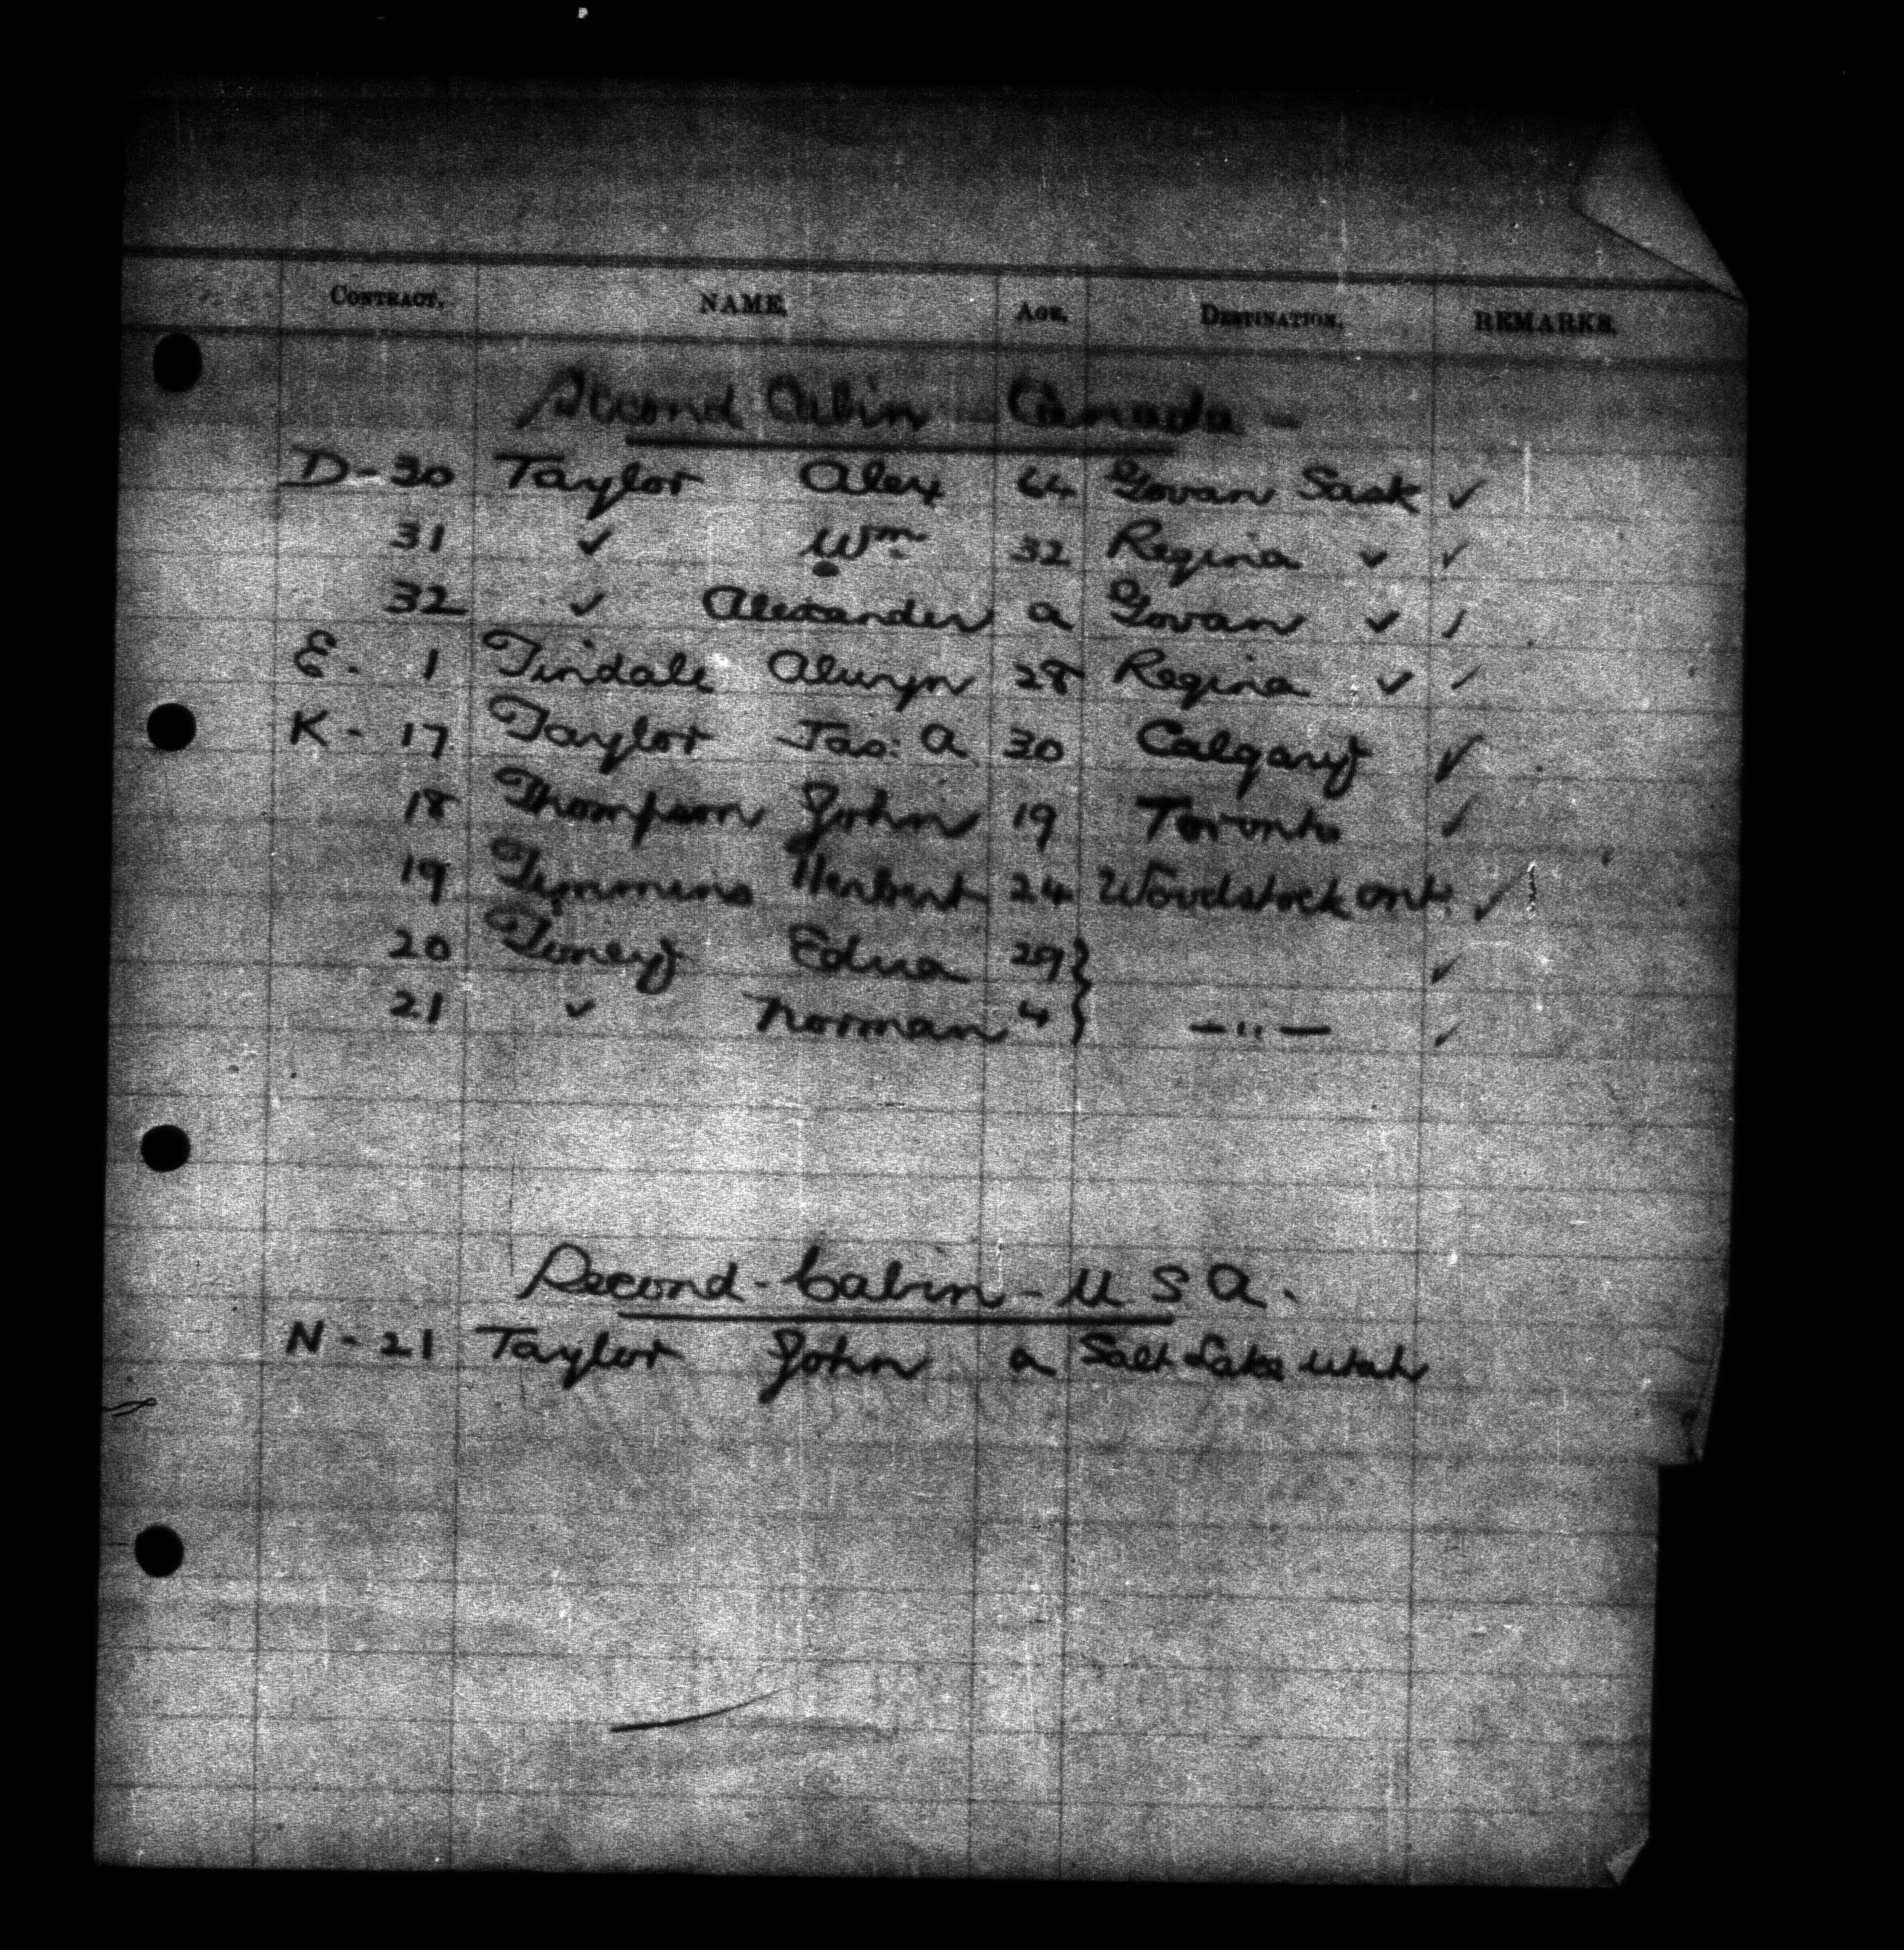 CONTRACT. NAME. AGE. DESTINATION. REMARKS.
Second Cabin - Canada -
D-30 Taylor Alex 64 Govan Sask ✓
31 ✓ Wm 32 Regina ✓ ✓
32 ✓ Alexander a Govan ✓ ✓
E-1 Tindale Alwyn 28 Regina ✓ ✓
K-17 Taylor Jas: A 30 Calgary ✓
18 Thompson John 19 Toronto ✓
19 Timmins Herbert 24 Woodstock ont. ✓
20 Toney Edna 29 } ✓
21 ✓ Norman 4 } —"— ✓
Second-Cabin-U S A.
N-21 Taylor John a Salt Lake Utah